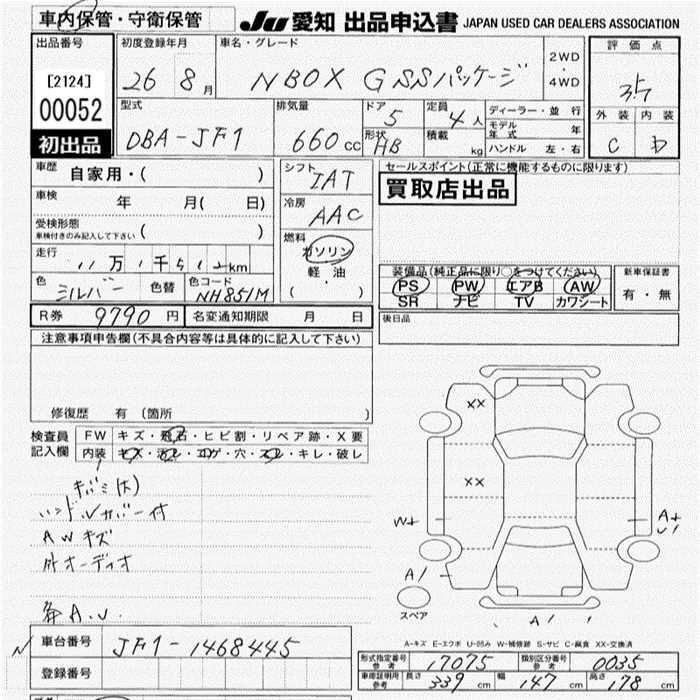 車内保管・守衛保管
JU 愛知 出品申込書 JAPAN USED CAR DEALERS ASSOCIATION
出品番号 初度登録年月 車名・グレード 評価点
[2124] 26 8月 NBOX G SSパッケージ 2WD・4WD 3.5
00052 型式 排気量 ドア 定員 ディーラー・並行 外装 内装
初出品 DBA-JF1 660cc 5 4人 モデル年式 年 C D
形状 HB 積載 kg ハンドル 左・右
車歴 自家用・( ) シフト IAT セールスポイント(正常に機能するものに限ります)
車検 年 月( 日) 冷房 AAC 買取店出品
受検形態 車検付きのみ記入して下さい ( )
燃料 ガソリン
走行 11万1千512km 軽油 装備品(純正品に限り○をつけてください) 新車保証書
色 シルバー 色替 色コード NH851M ・ ( ) PS PW エアB AW 有・無
SR ナビ TV カワシート
R券 9790円 名変通知期限 月 日 後日品
注意事項申告欄(不具合内容等は具体的に記入して下さい)
修復歴 有 (箇所 )
検査員 FW キズ・飛石・ヒビ割・リペア跡・X要
記入欄 内装 キズ・汚レ・コゲ・穴・スレ・キレ・破レ
XX
XX
キバミ(大)
ハンドルカバー付
AWキズ
外オーディオ
W+ A+ U1
A1
スペア
A1
A.U.
A-キズ E-エクボ U-凹み W-補修跡 S-サビ C-腐食 XX-交換済
車台番号 JF1-1468445
登録番号
形式指定番号 参考 17075 類別区分番号 参考 0035
車庫証明用 参考 長さ 339cm 幅 147cm 高さ 178cm